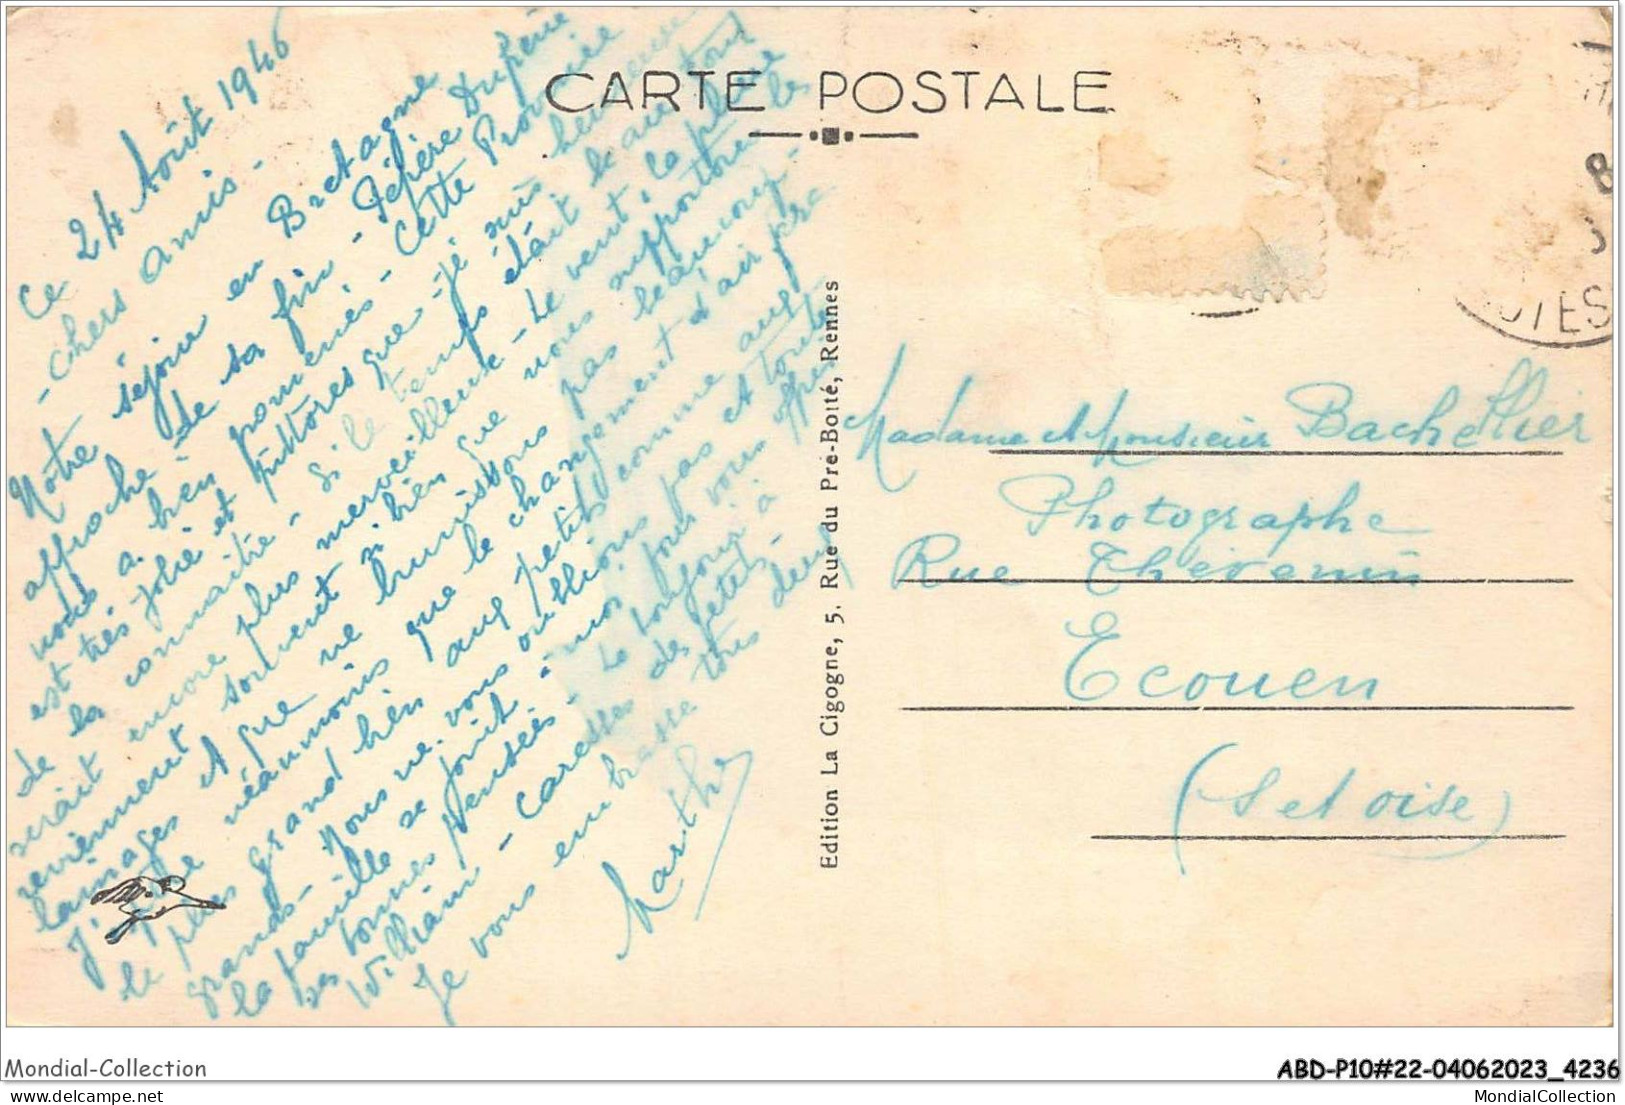 CARTE POSTALE
Ce 24 Août 1946
- Chers Amis -
Notre séjour en Bretagne
approche de sa fin - Pépère Duphénie
nous a bien promenés - Cette Province
est très jolie et pittoresque - je suis heureuse
de la connaître - Si le temps était le
serait encore plus merveilleux - Le vent, la pluie
reviennent souvent si bien que nous supportons les
lainages et que ne brunissons pas beaucoup -
J'espère néanmoins que le changement d'air fera
le plus grand bien aux petits comme aux
grands - Nous ne vous oublions pas et toute
la famille se joint à nous pour vous offrir
ses bonnes pensées - Le toujou à
William - Caresses des petets -
Je vous embrasse tous deux
Marthe
Edition La Cigogne, 5. Rue du Pré-Botté, Rennes
Madame et Monsieur Bachellier
Photographe
Rue Thévenin
Ecouen
(S et Oise)
Mondial-Collection
ABD-P10#22-04062023_4236
MondialCollection